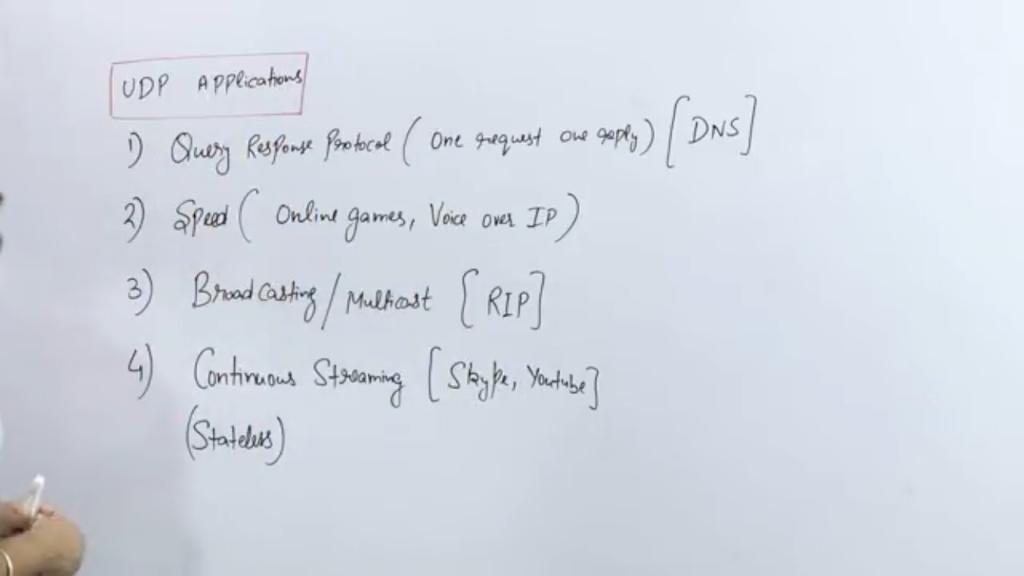 UDP Applications
1) Query Response Protocol ( One request one reply) [DNS]
2) Speed ( Online games, Voice over IP )
3) Broadcasting / Multicast [RIP]
4) Continuous Streaming [Skype, Youtube]
(Stateless)